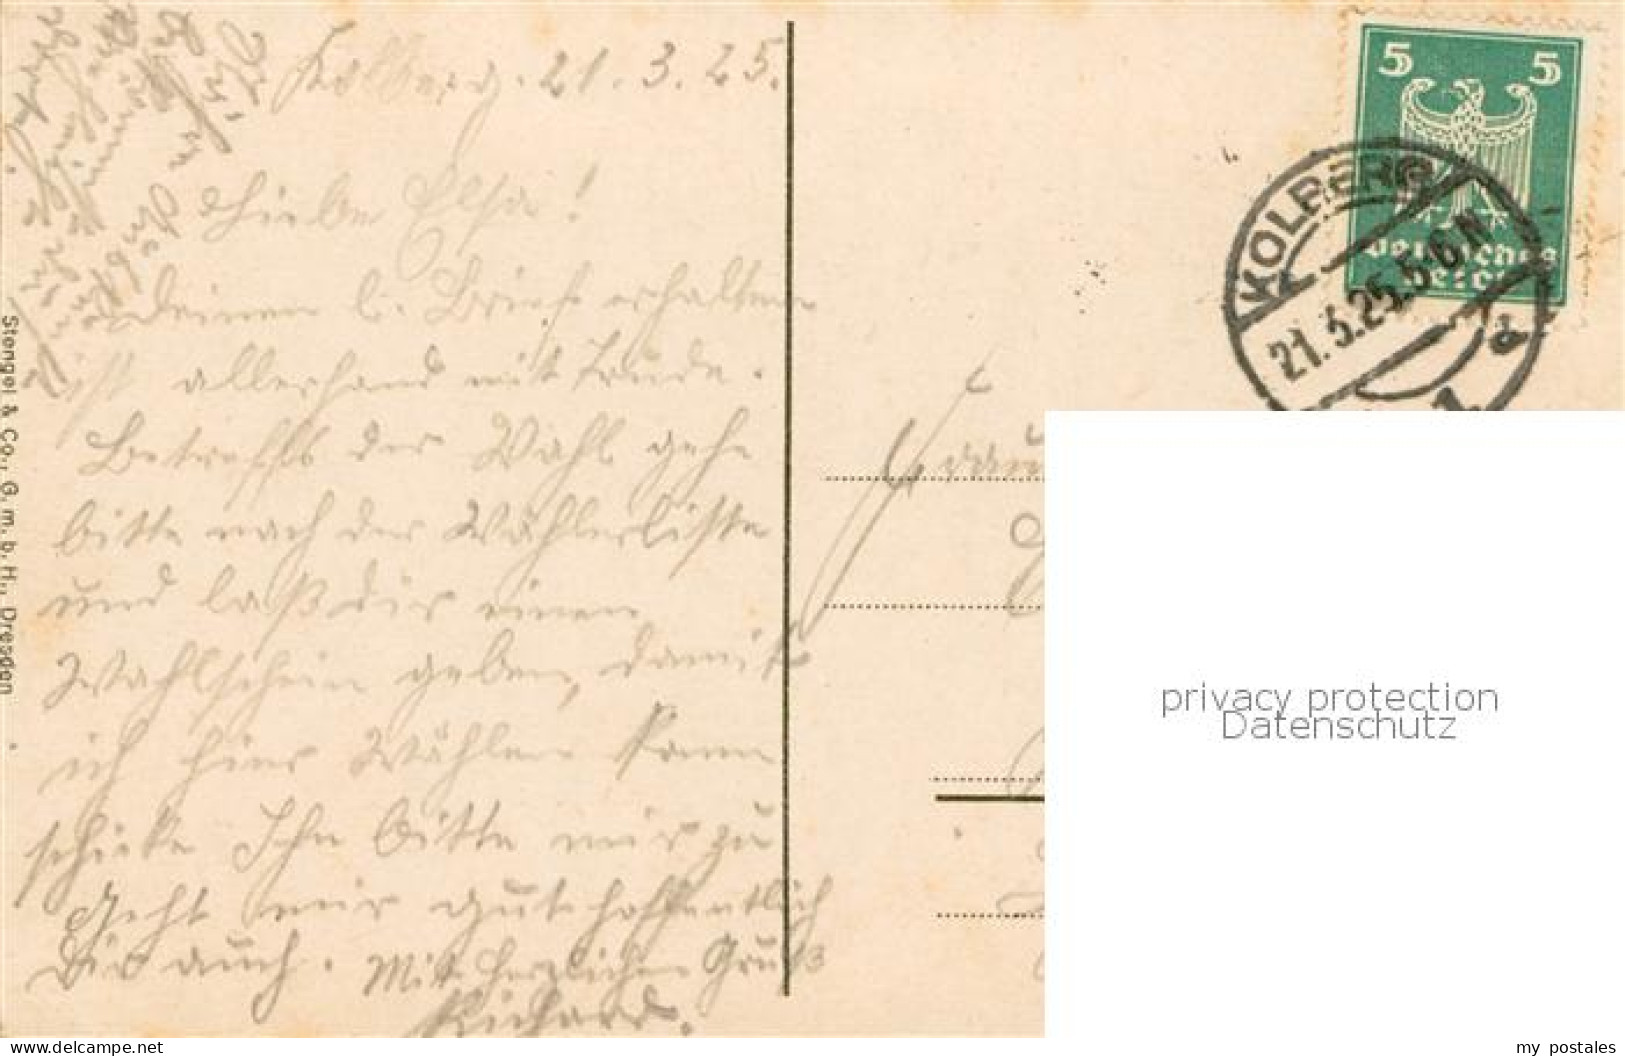 Kolberg. 21.3.25.
Liebe Elsa!
Deinen l. Brief erhalten
ist allerhand mit Trude.
Betreffs der Wahl gehe
bitte nach der Wählerliste
und laß dir einen
Wahlschein geben, damit
ich hier Wählen kann
schicke Ihn bitte mir zu
Geht mir gut hoffentlich
Dir auch. Mit herzlichen Gruß
Richard.
Stengel & Co., G. m. b. H., Dresden
5 5
Deutsches
Reich
KOLBERG
21.3.25.5-6N
1 d
Frau
privacy protection
Datenschutz
www.delcampe.net
my_postales